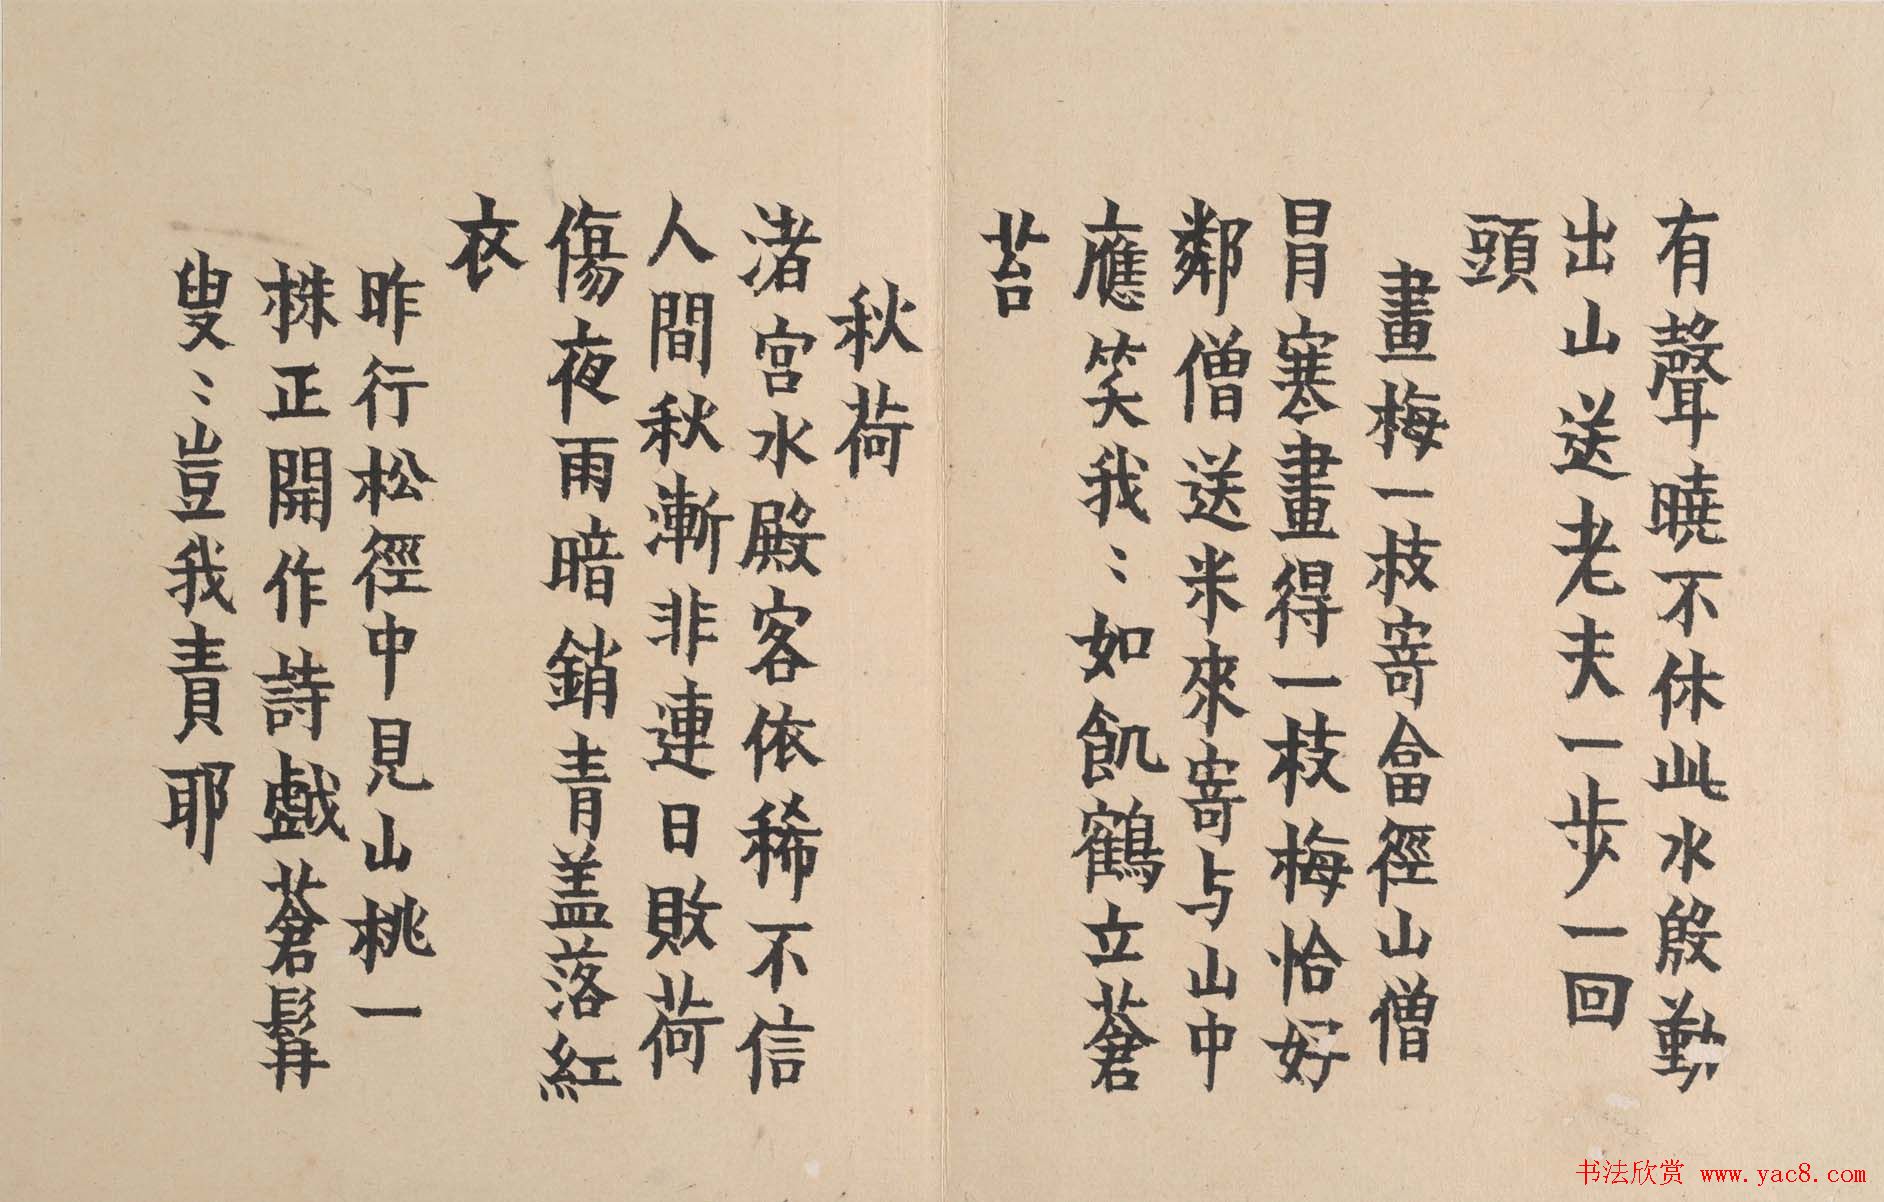 有聲曉不休此水殷勤
出山送老夫一步一回
頭
畫梅一枝寄畣徑山僧
冒寒畫得一枝梅恰好
鄰僧送米來寄与山中
應笑我〻如飢鶴立蒼
苔
秋荷
渚宮水殿客依稀不信
人間秋漸非連日敗荷
傷夜雨暗銷青盖落紅
衣
昨行松徑中見山桃一
株正開作詩戲蒼髯
叟〻豈我責耶
书法欣赏 www.yac8.com